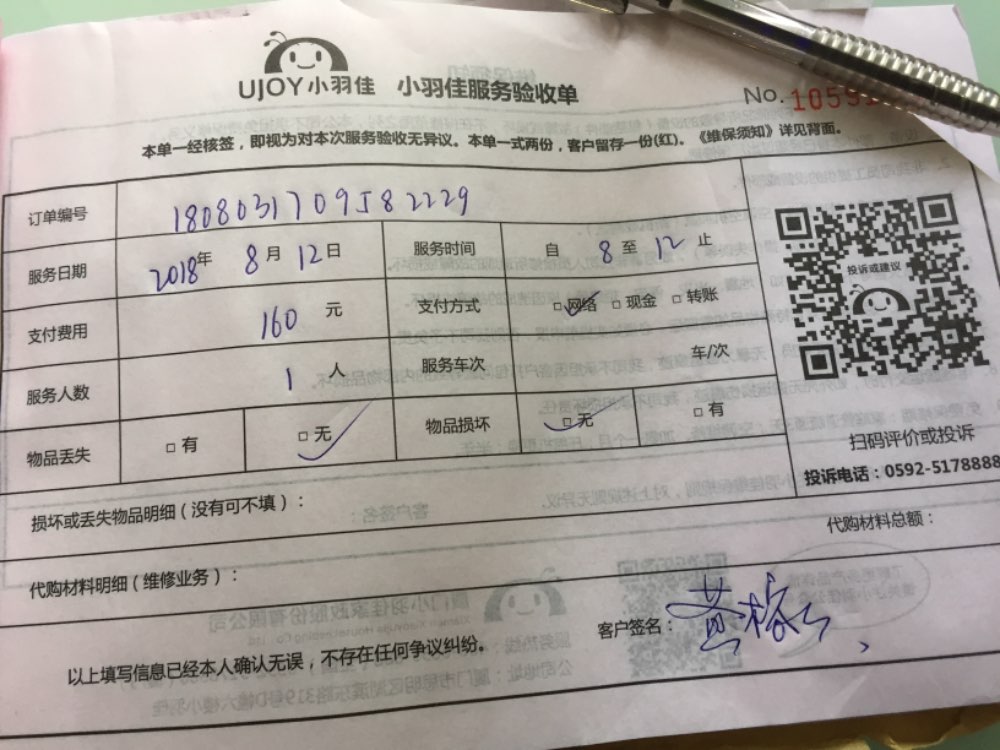 UJOY小羽佳 小羽佳服务验收单
No. 1059
本单一经核签，即视为对本次服务验收无异议。本单一式两份，客户留存一份(红)。《维保须知》详见背面。
订单编号 1808031709582229
服务日期 2018年 8月 12日 服务时间 自 8 至 12 止
支付费用 160 元 支付方式 □网络 □现金 □转账
服务人数 1 人 服务车次 车/次
物品丢失 □有 □无 物品损坏 □无 □有
投诉或建议
扫码评价或投诉
投诉电话：0592-5178888
损坏或丢失物品明细（没有可不填）：
代购材料明细（维修业务）： 代购材料总额：
以上填写信息已经本人确认无误，不存在任何争议纠纷。 客户签名：